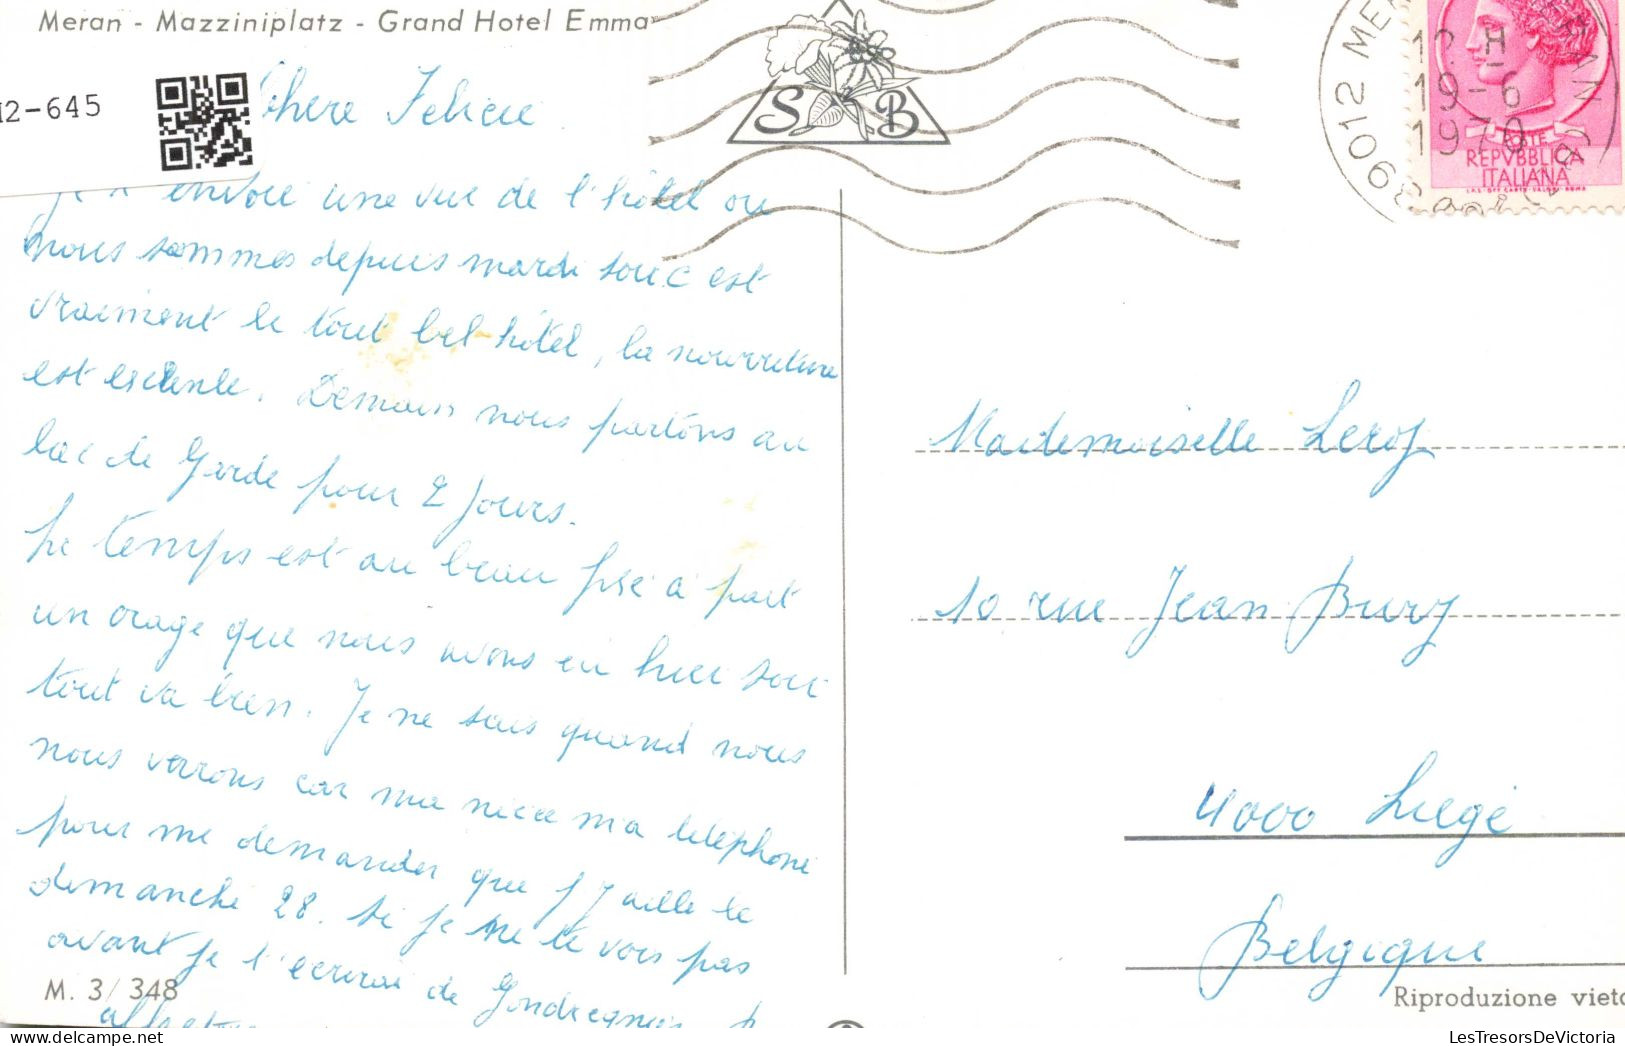 Meran - Mazziniplatz - Grand Hotel Emma
12-645
Chere Felicie
Je t'envoie une vue de l'hôtel ou
nous sommes depuis mardi soir c est
vraiment le tout bel hôtel, la nourriture
est exelente. Demain nous partons au
lac de Garde pour 2 jours.
Le temps est au beau fixe à part
un orage que nous avons eu hier soir
tout va bien. Je ne sais quand nous
nous verrons car ma niece ma téléphone
pour me demander que j'aille le
dimanche 28. Si je ne te vois pas
avant je t'écrirai de
M. 3/348
S B
39012 MER
12 H
19-6
1970
POSTE
REPVBBLICA
ITALIANA
Mademoiselle Leroy
10 rue Jean Bury
4000 Liège
Belgique
Riproduzione vieta
LesTresorsDeVictoria